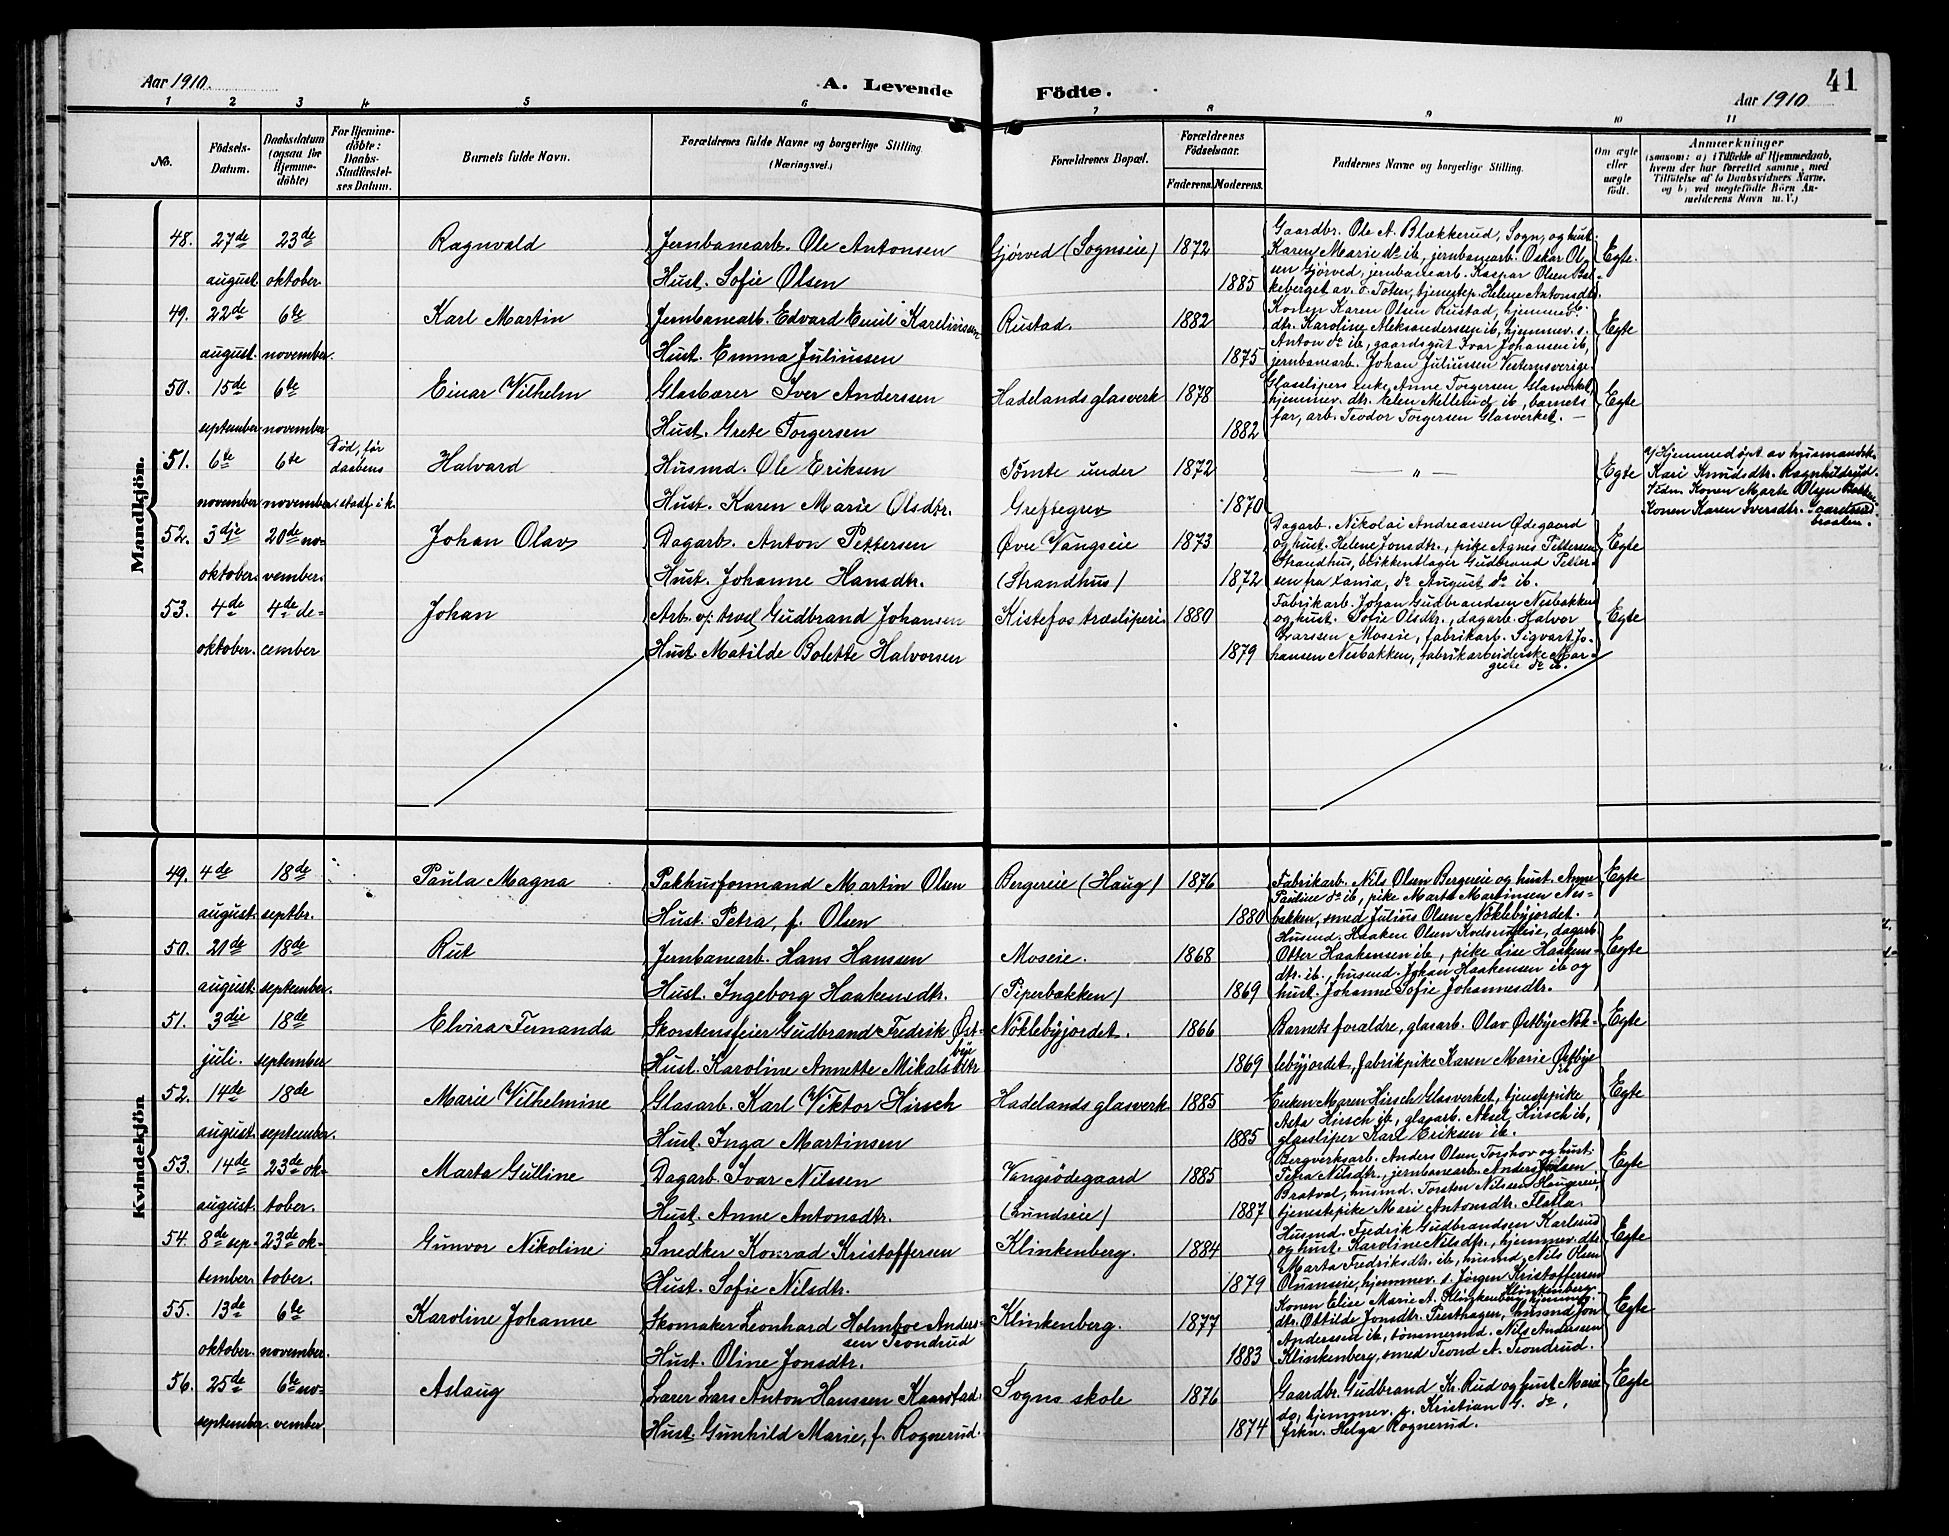 Aar 1910.
A. Levende
Födte.
41
Aar 1910
1 2 3 4 5 6 7 8 9 10 11
No.
Födsels-Datum.
Daabsdatum (ogsaa for Hjemme-döbte)
For Hjemme-döbte: Daabs-Stadfestel-ses Datum.
Barnets fulde Navn.
Forældrenes fulde Navne og borgerlige Stilling. (Næringsvei.)
Forældrenes Bopæl.
Forældrenes Födselsaar.
Faderens. Moderens.
Faddernes Navne og borgerlige Stilling.
Om ægte eller uægte født.
Anmærkninger
(saasom: a) i Tilfælde af Hjemmedaab,
hvem der har forrettet samme, med
Tilföielse af to Daabsvidners Navne,
og b) ved uægtefödte Börn An-
melderens Navn m. V.)
Mandkjön.
48. 27de 23de Ragnvald Jernbanearb. Ole Antonsen Gjörved (Sognseie) 1872 Egte.
august oktober. Hust. Sofie Olsen 1885
Gaardbr. Ole A. Blækkerud, Sogn, og hust.
Karen Marie do ib, jernbanearb. Oskar Ol-
sen Gjörved, jernbanearb. Kaspar Olsen Bal-
keberget av ö. Toten, tjenestep. Helene Antonsdtr.
49. 22de 6te Karl Martin Jernbanearb. Edvard Emil Kareliussen Rustad. 1882 Egte
august november. Hust. Emma Juliussen 1875
Karen Olsen Rustad, hjemmev.
dtr. Karoline Aleksandersen ib, hjemmev. s.
Anton do ib, gaardsgut Ivar Johansen ib,
jernbanearb. Johan Juliussen Vesternsverige.
50. 15de 6te Einar Vilhelm Glasbærer Iver Anderssen Hadelands glasverk 1878 Egte
september november Hust. Grete Torgersen 1882
Glasslipers enke Anne Torgersen Glasverket,
hjemmev. dtr. Elen Mellerud ib, barnets
far, arb. Teodor Torgersen Glasverket. —
51. 6te 6te Död, før daabens stadf. i k. Halvard Husmd. Ole Eriksen Tömte under 1872 — „ — Egte
november november Hust. Karen Marie Olsdtr. Greftegrev 1870
Hjemmedöpt av husmandsk.
Kari Knudsdtr. Ragnhildrud.
Vidn. Konen Marte Olsen
Konen Karen Iversdtr.
braaten.
52. 3dje 20de no- Johan Olav Dagarb. Anton Pettersen Övre Vangseie 1873 Egte
oktober. vember. Hust. Johanne Hansdtr. (Strandhus) 1872
Dagarb. Nikolai Andreassen Ödegaard
og hust. Helene Jonsdtr., pike Agnes Pettersen
Strandhus, blikkenslager Gudbrand Petter-
sen fra Xania, do August do ib.
53. 4de 4de de- Johan Arb. Gudbrand Johansen Kistefos træsliperi 1880 Egte
oktober. cember Hust. Matilde Bolette Halvorsen 1879
Fabrikarb. Johan Gudbrandsen Nesbakken
og hust. Sofie Olsdtr., dagarb. Halvor
Larssen Moseie, fabrikarb. Sigvart Jo-
hansen Nesbakken, fabrikarbeiderske Mar-
grete do ib.
Kvindekjön
49. 4de 18de Paula Magna Pakhusformand Martin Olsen Bergereie (Haug) 1876 Egte
august. septbr. Hust. Petra, f. Olsen 1880
Fabrikarb. Nils Olsen Bergereie og hust. Anne
Pauline do ib, pike Marta Martinsen Nes-
bakken, smed Julius Olsen Nöklebyjordet.
50. 21de 18de Rut Jernbanearb. Hans Hanssen Moseie. 1868 Egte
august. september. Hust. Ingeborg Haakensdtr. (Piperbakken) 1869
Husmd. Haaken Olsen dagarb.
Otter Haakensen ib, pike Lise Haakens-
dtr. ib., husmd. Johan Haakensen ib og
hust. Johanne Sofie Johannesdtr.
51. 3die 18de Elvira Fernanda Skorstensfeier Gudbrand Fredrik Öst-bye Nöklebyjordet. 1866 Egte
juli. september Hust. Karoline Annette Mikalsdtr 1869
Barnets foraldre, glasarb. Olav Östbye Nök-
lebyjordet, fabrikpike Karen Marie Östbye
52. 14de 18de Marie Vilhelmine Glasarb. Karl Viktor Hirsch Hadelands glasverk 1885 Egte
august. september. Hust. Inga Martinsen 1885
Enken Maren Hirsch Glasverket, tjenstpike
Asta Hirsch ib, glasarb. Aksel Hirsch ib,
glassliper Karl Eriksen ib.
53. 14de 23de ok- Marta Gulline Dagarb. Ivar Nilssen Vangsödegaard 1885 Egte
august. tober. Hust. Anne Antonsdtr. (Lundseie) 1887
Bergverksarb. Anders Olsen Torshov og hust.
Petra Nilsdtr., jernbanearb. Anders Nilsen
Bratval, husmd. Torsten Nilsen Haugereie,
tjenestpike Mari Antonsdtr. Flatla.
54. 8de sep- 23de ok- Gunvor Nikoline Snedker Konrad Kristoffersen Klinkenberg. 1884 Egte
tember. tober. Hust. Sofie Nilsdtr. 1879
Husmd. Fredrik Gudbrandsen Karlsrud
og hust. Karoline Nilsdtr., hjemmev. dtr
Marta Fredriksdtr. ib, husmd. Nils Olsen
Olumseie, hjemmev. s. Jörgen Kristoffersen
Klinkenberg.
55. 13de 6te Karoline Johanne Skomaker Leonhard Holmboe Anders-sen Trondrud Klinkenberg. 1877 Egte
oktober. november. Hust. Oline Jonsdtr. 1883
Konen Elise Marie A. Klinkenberg, hjemmev.
dtr. Ottilde Jonsdtr. husmd Jon
Anderssen ib, tömmermd. Nils Anderssen
Klinkenberg, smed Trond A. Trondrud.
56. 25de 6te no- Aslaug Lærer Lars Anton Hanssen Kaarstad. Sogns skole 1876 Egte
september. vember. Hust. Gunhild Marie, f. Rognerud. 1874
Gaardbr. Gudbrand Kr. Rud og hust Marie
do, hjemmev. s. Kristian G. do,
frkn. Helga Rognerud.